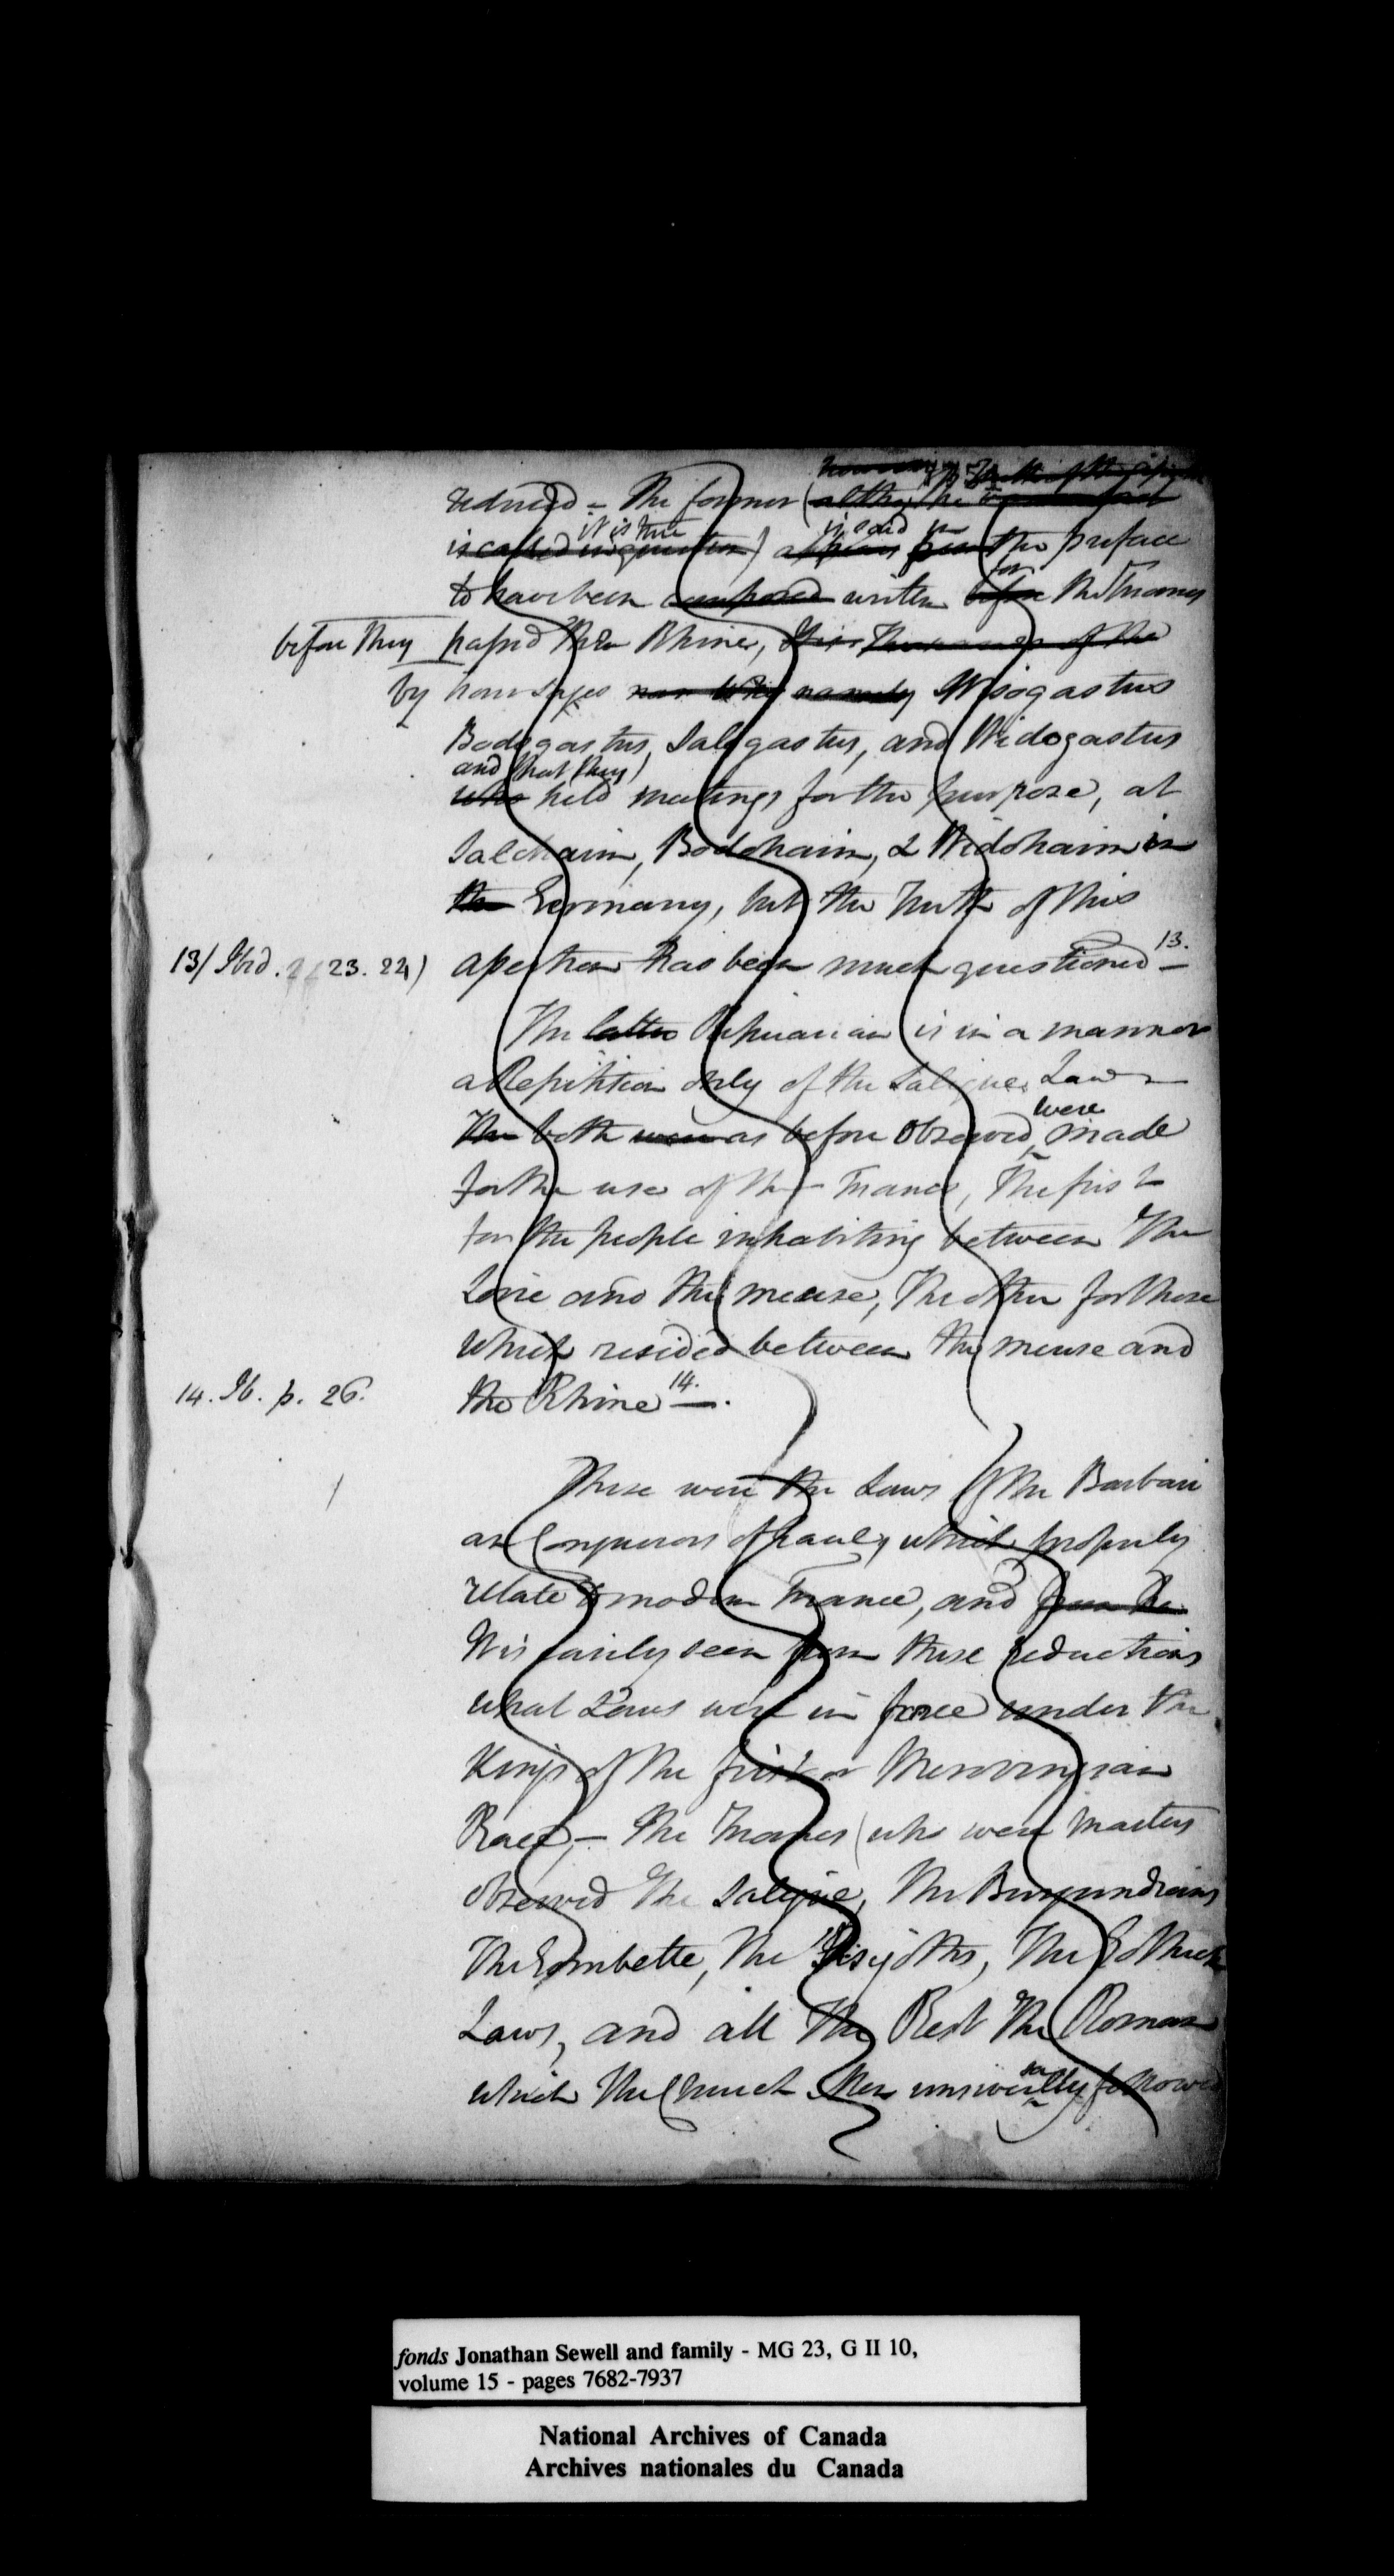 reduced – The former (altho' the
it is true is said in
is called in question) appears from the preface
for
to have been composed written before the Francs
before they passed the Rhine,
by four sages namely Wisogastus
Bodogastus, Salogastus, and Widogastus
and that they
who held meetings for the purpose, at
Salchaim, Bodohaim, & Widohaim in
the Germany, but the truth of this
13/ Ibid. 23. 24) assertion has been much questioned 13. –
The latter Ripuarian is in a manner
a Repitition only of the Salique Law –
were
The both were as before observed, made
for the use of the Francs, The first
for the people inhabiting between the
Loire and the meuse, The other for those
which resided between the meuse and
14. Ib. p. 26. the Rhine 14. –.
These were the Laws of the Barbari
an Conquerors of Gaul, which properly
relate to modern France, and from the
It is easily seen from these reductions
what Laws were in force under the
Kings of the first or Merovingian
Race, – The Francs (who were masters
observed the Salique, The Burgundians
The Gombette, The Visigoths, The Gothick
Laws, and all the Rest the Roman
which the Church then universally followed
fonds Jonathan Sewell and family - MG 23, G II 10,
volume 15 - pages 7682-7937
National Archives of Canada
Archives nationales du Canada